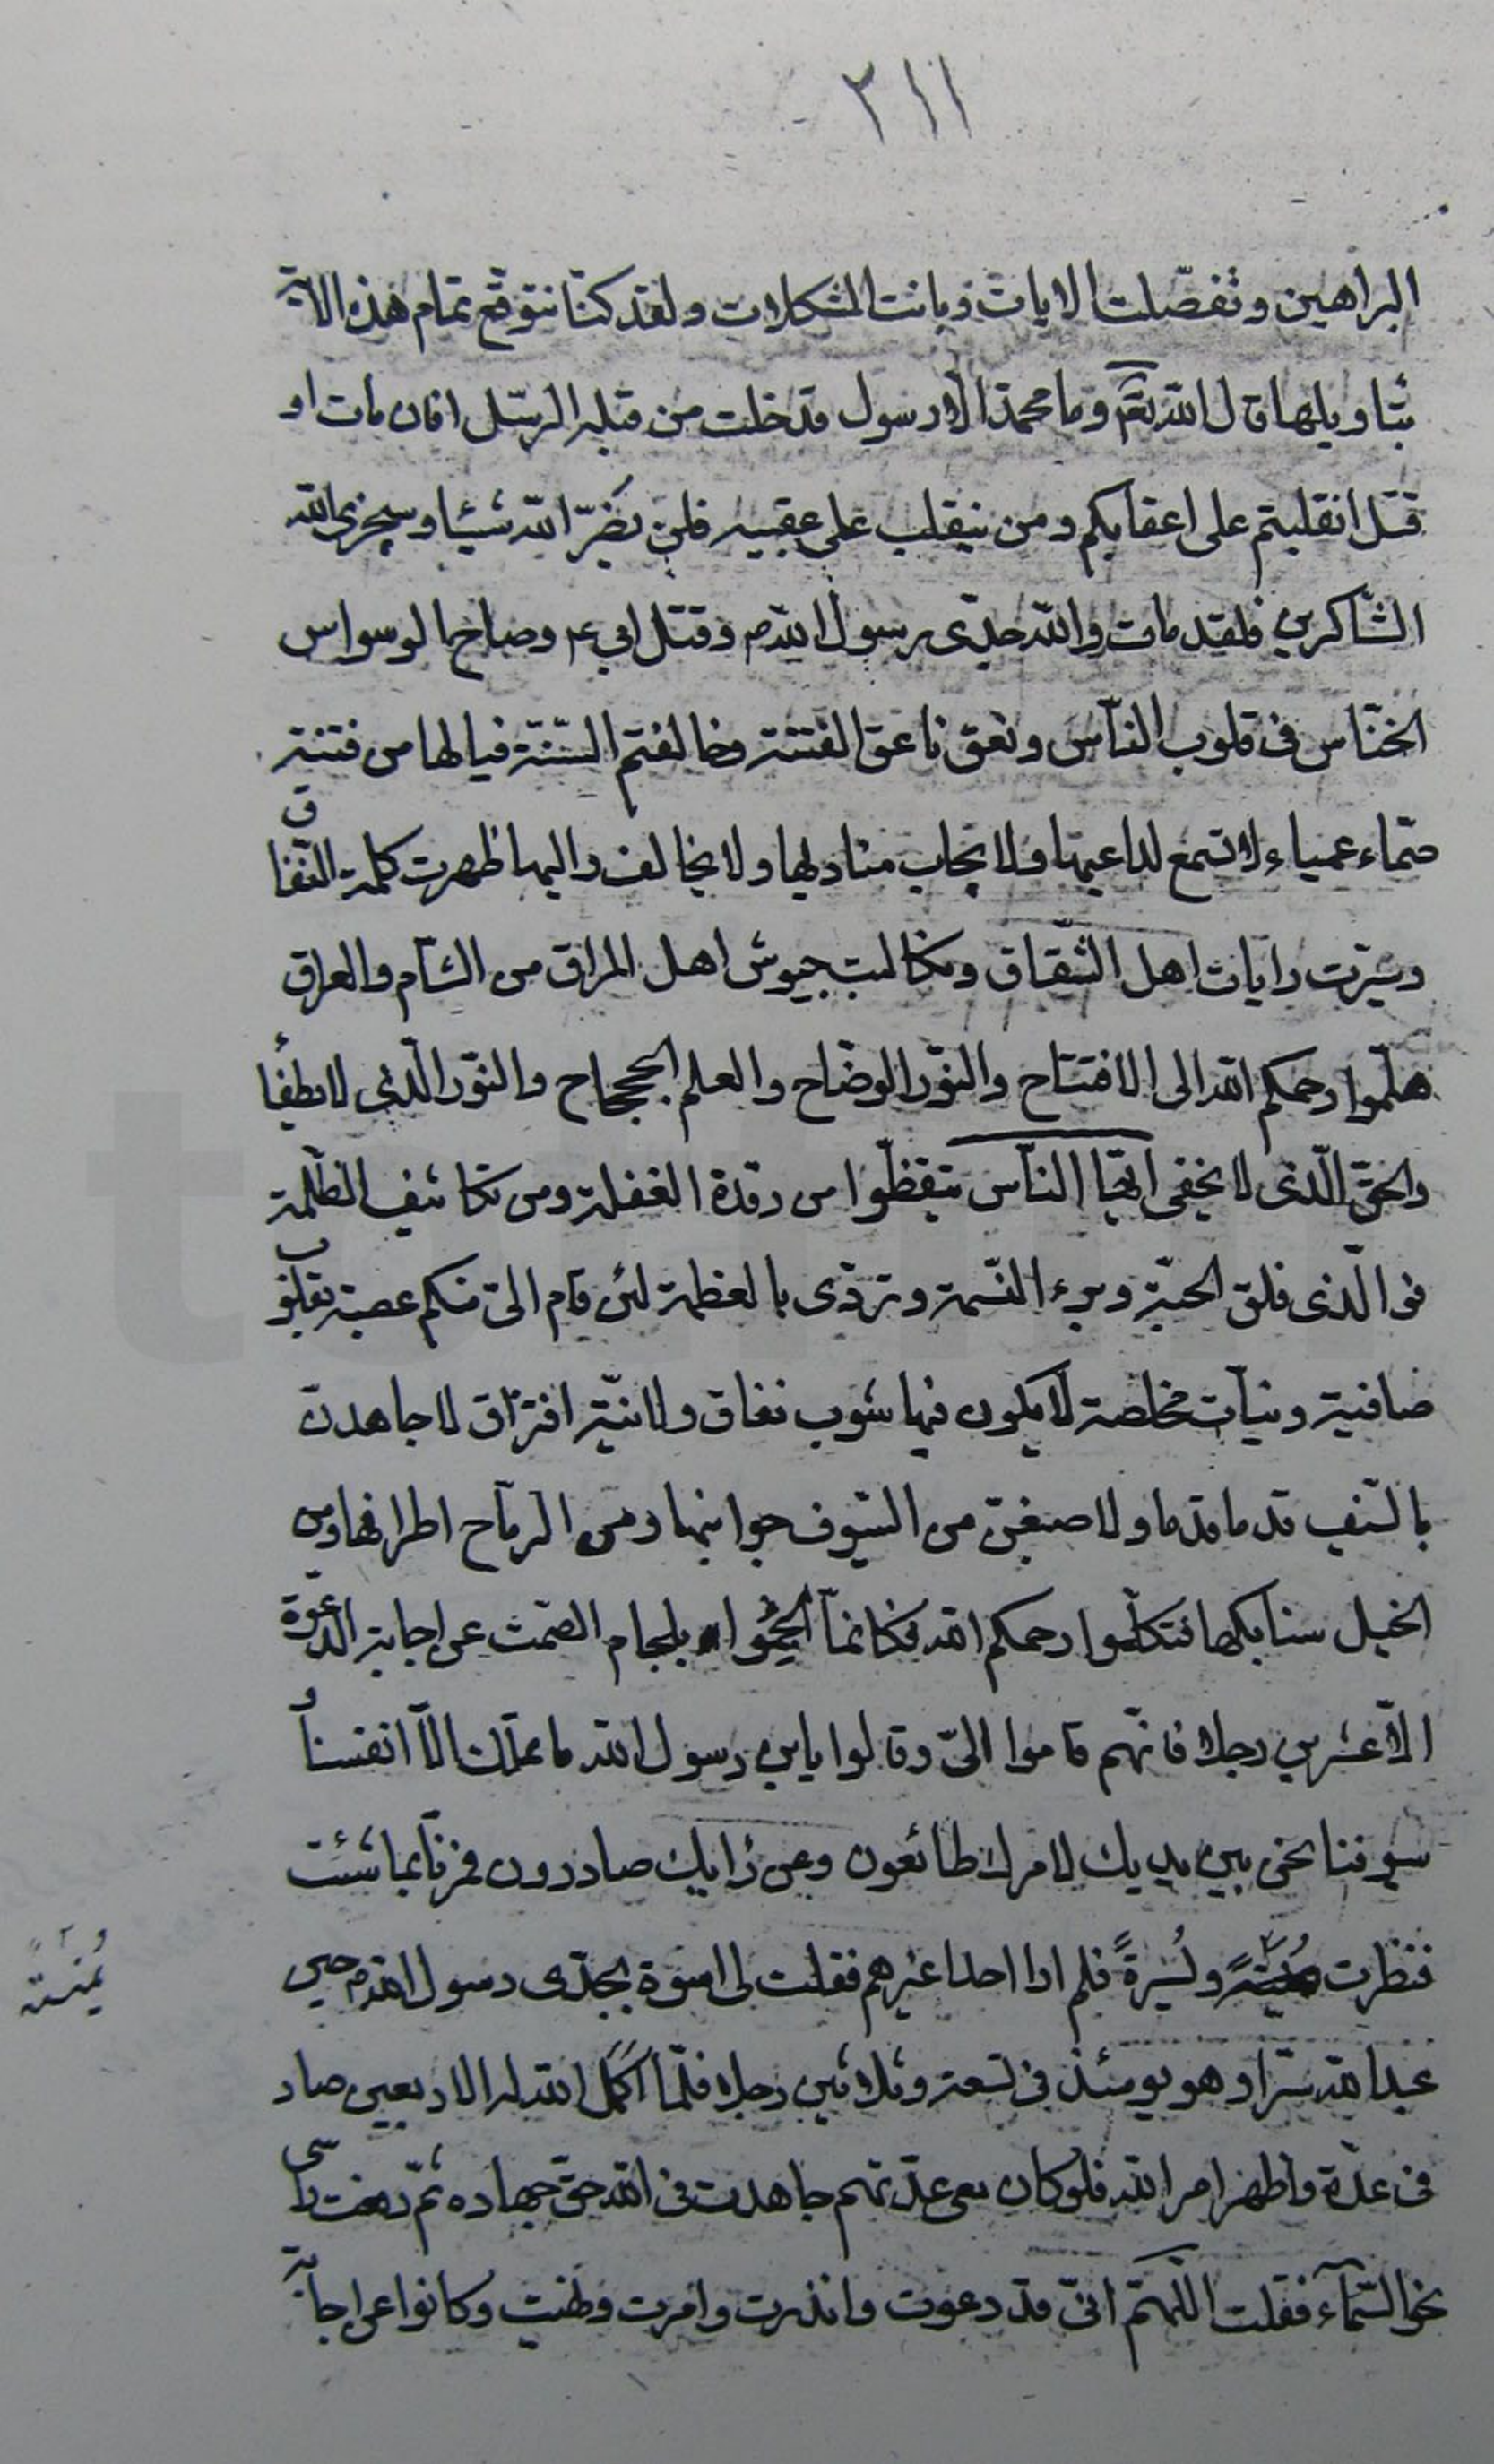 ٢١١
البراهين وتفصّلت الايات وبانت المشكلات ولقد كنّا نتوقّع تمام هذه الاية
بتاويلها قال الله تعم وما محمد الا رسول قد خلت من قبله الرسل افان مات او
قتل انقلبتم على اعقابكم ومن ينقلب على عقبيه فلن يضرّ الله شيئا وسيجزى الله
الشّاكرين فلقد مات والله جدّى رسول الله ص وقتل ابى ع وصاح الوسواس
الخنّاس فى قلوب النّاس ونعق ناعق الفتنة وخالفتم السّنّة فيالها من فتنة
صمّاء عمياء لا تسمع لداعيها ولا يجاب مناديها ولا يخالف واليها ظهرت كلمة النّفاق
وسيّرت رايات اهل الشّقاق وتكالبت جيوش اهل المراق من الشام والعراق
هلمّوا رحمكم الله الى الافتتاح والنّور الوضّاح والعلم الجحجاح والنّور الّذى لا يطفأ
والحقّ الّذى لا يخفى ايّها النّاس تيقّظوا من رقدة الغفلة ومن تكاثيف الظّلمة
فو الّذى فلق الحبّة وبرء النّسمة وتردّى بالعظمة لئن قام الىّ منكم عصبة بقلوب
صافية ونيّات مخلصة لا يكون فيها شوب نفاق ولا نيّة افتراق لاجاهدنّ
بالسّيف قدما قدما ولاضيقنّ من السّيوف جوانبها ومن الرّماح اطرافها ومن
الخيل سنابكها فتكلّموا رحمكم الله فكانّما الجموا بلجام الصّمت عن اجابة الدّعوة
الّا عشرين رجلا فانّهم قاموا الىّ وقالوا يابن رسول الله ما نملك الّا انفسنا و
سيوفنا نحن بين يديك لامرك طائعون وعن رايك صادرون فمرنا بما شئت
فنظرت يُمنَةً ويُسرةً فلم ارا احدا غيرهم فقلت لى اسوة بجدّى رسول الله ص حين
عبد الله سرّا وهو يومئذ فى تسعة وثلاثين رجلا فلمّا اكمل الله له الاربعين صار
فى عدّة واظهر امر الله فلو كان معى عدّتهم جاهدت فى الله حقّ جهاده ثمّ رفعت راسى
نحو السّمآء فقلت اللّهمّ انّى قد دعوت وانذرت وامرت ونهيت وكانوا عن اجابة
يُمنَةً